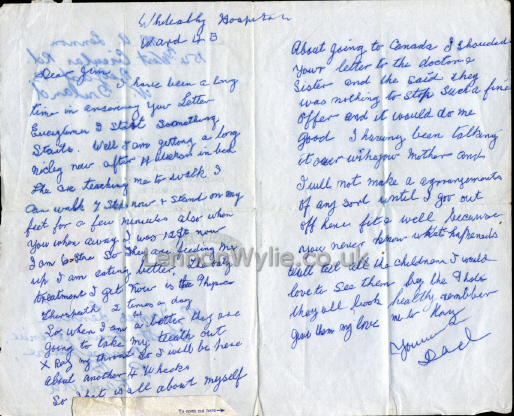 Whiteabby Hospital
Ward 4 B
Dear Jim
I have been a long
time in ansering your Letter
Everytime I start Something
Starts. Well I am getting a long
nicley now after 14 weeks in bed
the are teaching me to walk I
Can walk now + stand on my
feet for a few minutes also when
You when away I was now
I am So they are feeding me
up I am eating better, the only
treatment I get Now is the Physeo
Therapath 2 times a day
So when I am a better they are
going to take my teeth out
X Ray my throat So I will be here
About another 4 Wheeks
So that is all about myself
About going to Canada I showded
Your letter to the doctor &
Sister and the said they
was nothing to stop such a fine
offer and it would do me
Good I having been talking
it over withe your Mother and
I will not make a arrangements
of any sort until I go out
off here fit & well because
you never know what happens
Will tell all the children I would
love to See them by the Photo
they all look healthy
Give them my love me to Mary
Yours
Dad
LennonWylie.co.uk
To open me here